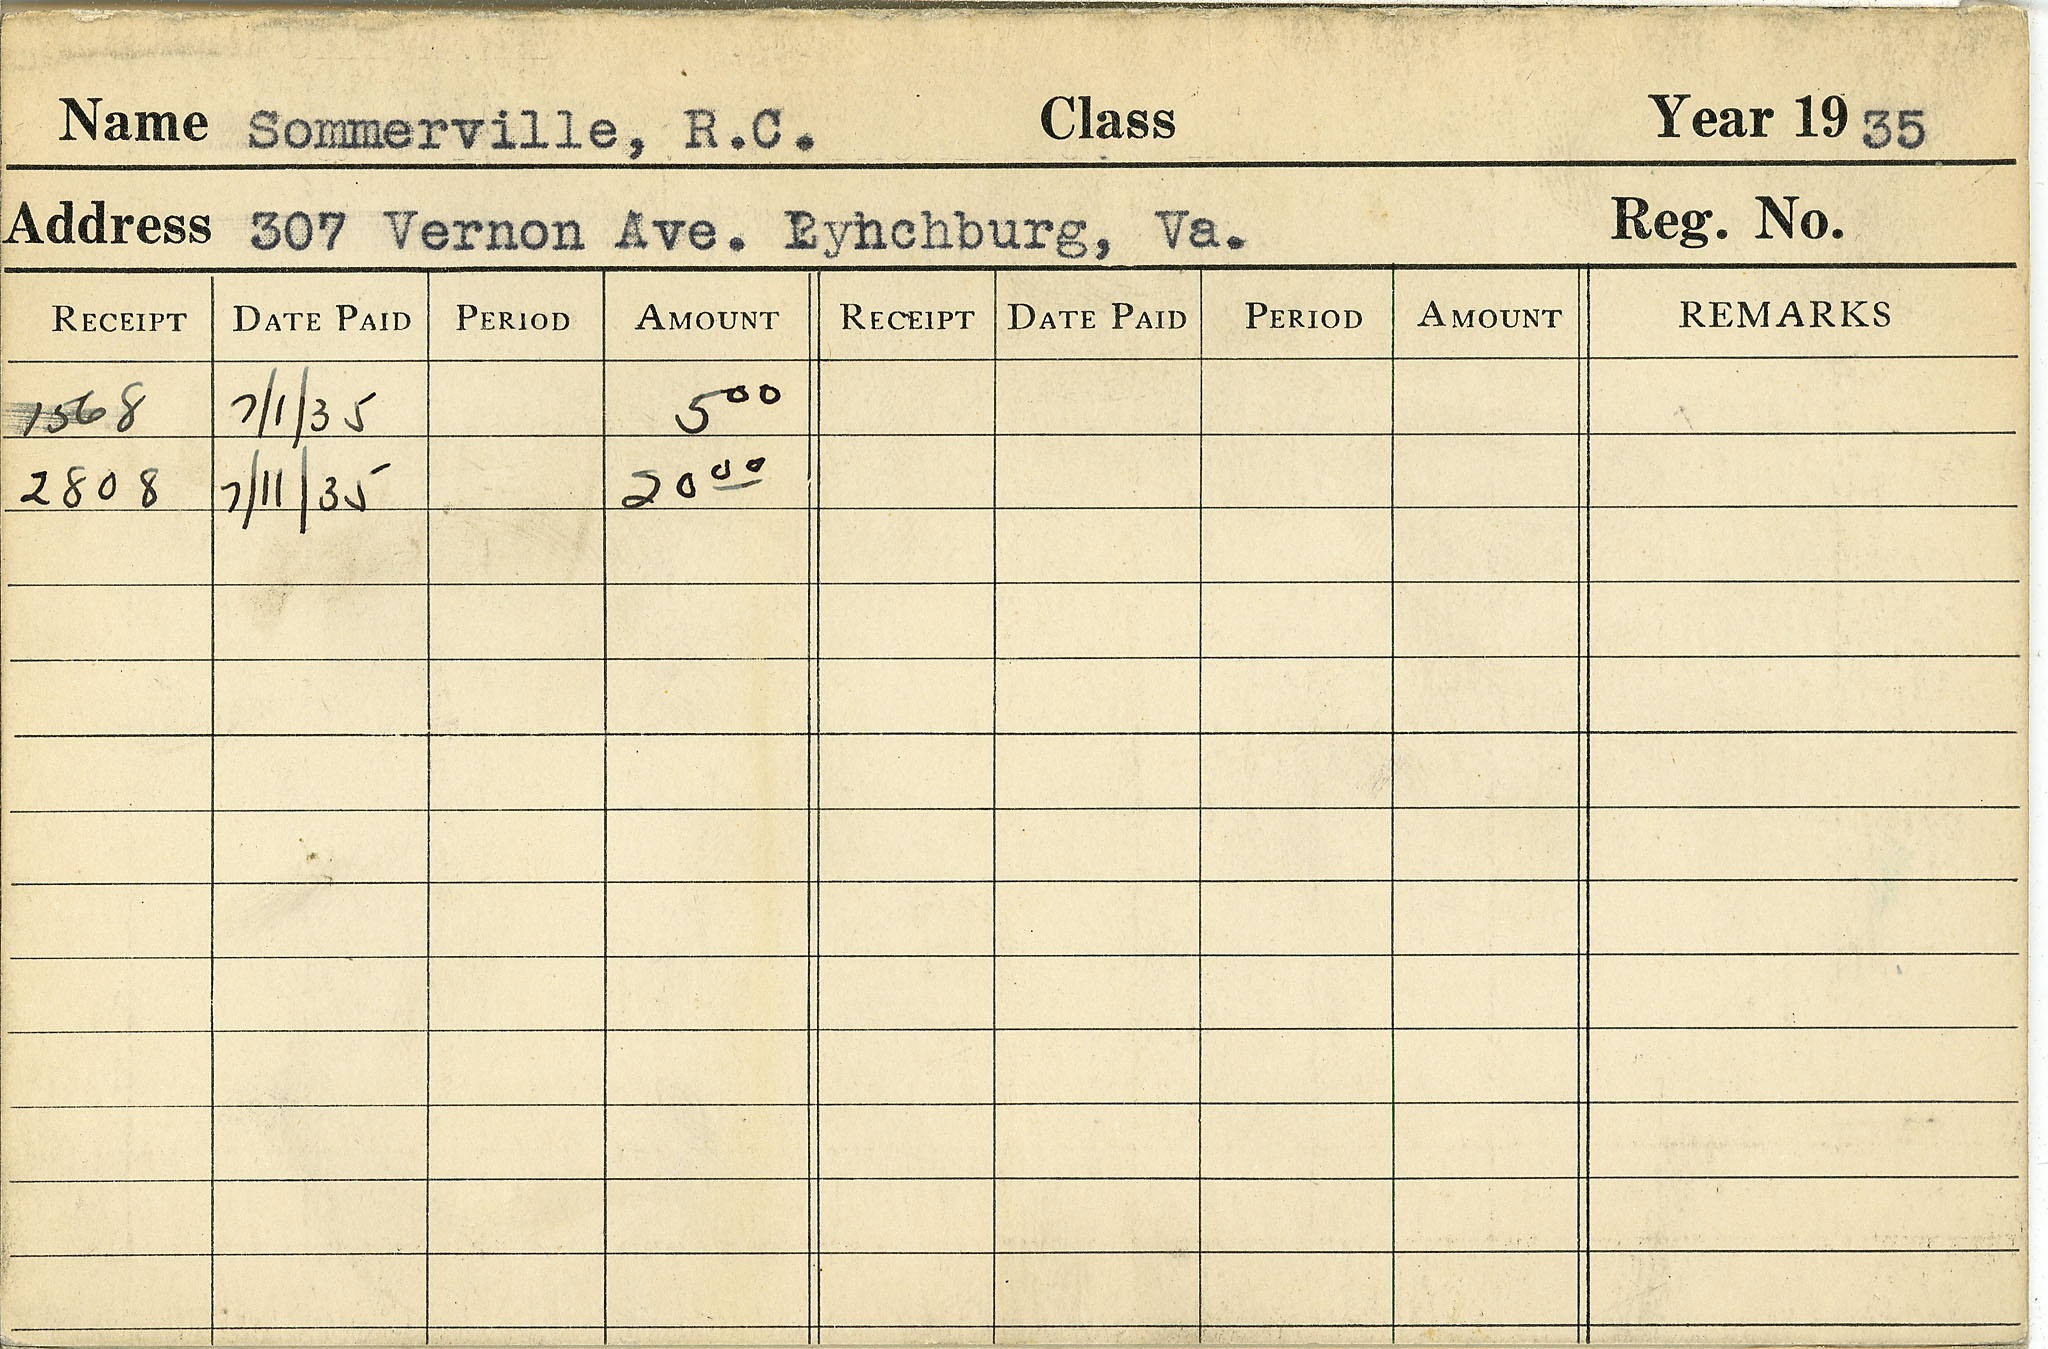 Name Sommerville, R.C. Class Year 19 35
Address 307 Vernon Ave. Lynchburg, Va. Reg. No.
RECEIPT DATE PAID PERIOD AMOUNT RECEIPT DATE PAID PERIOD AMOUNT REMARKS
1568 7/1/35 5 00
2808 7/11/35 20 00